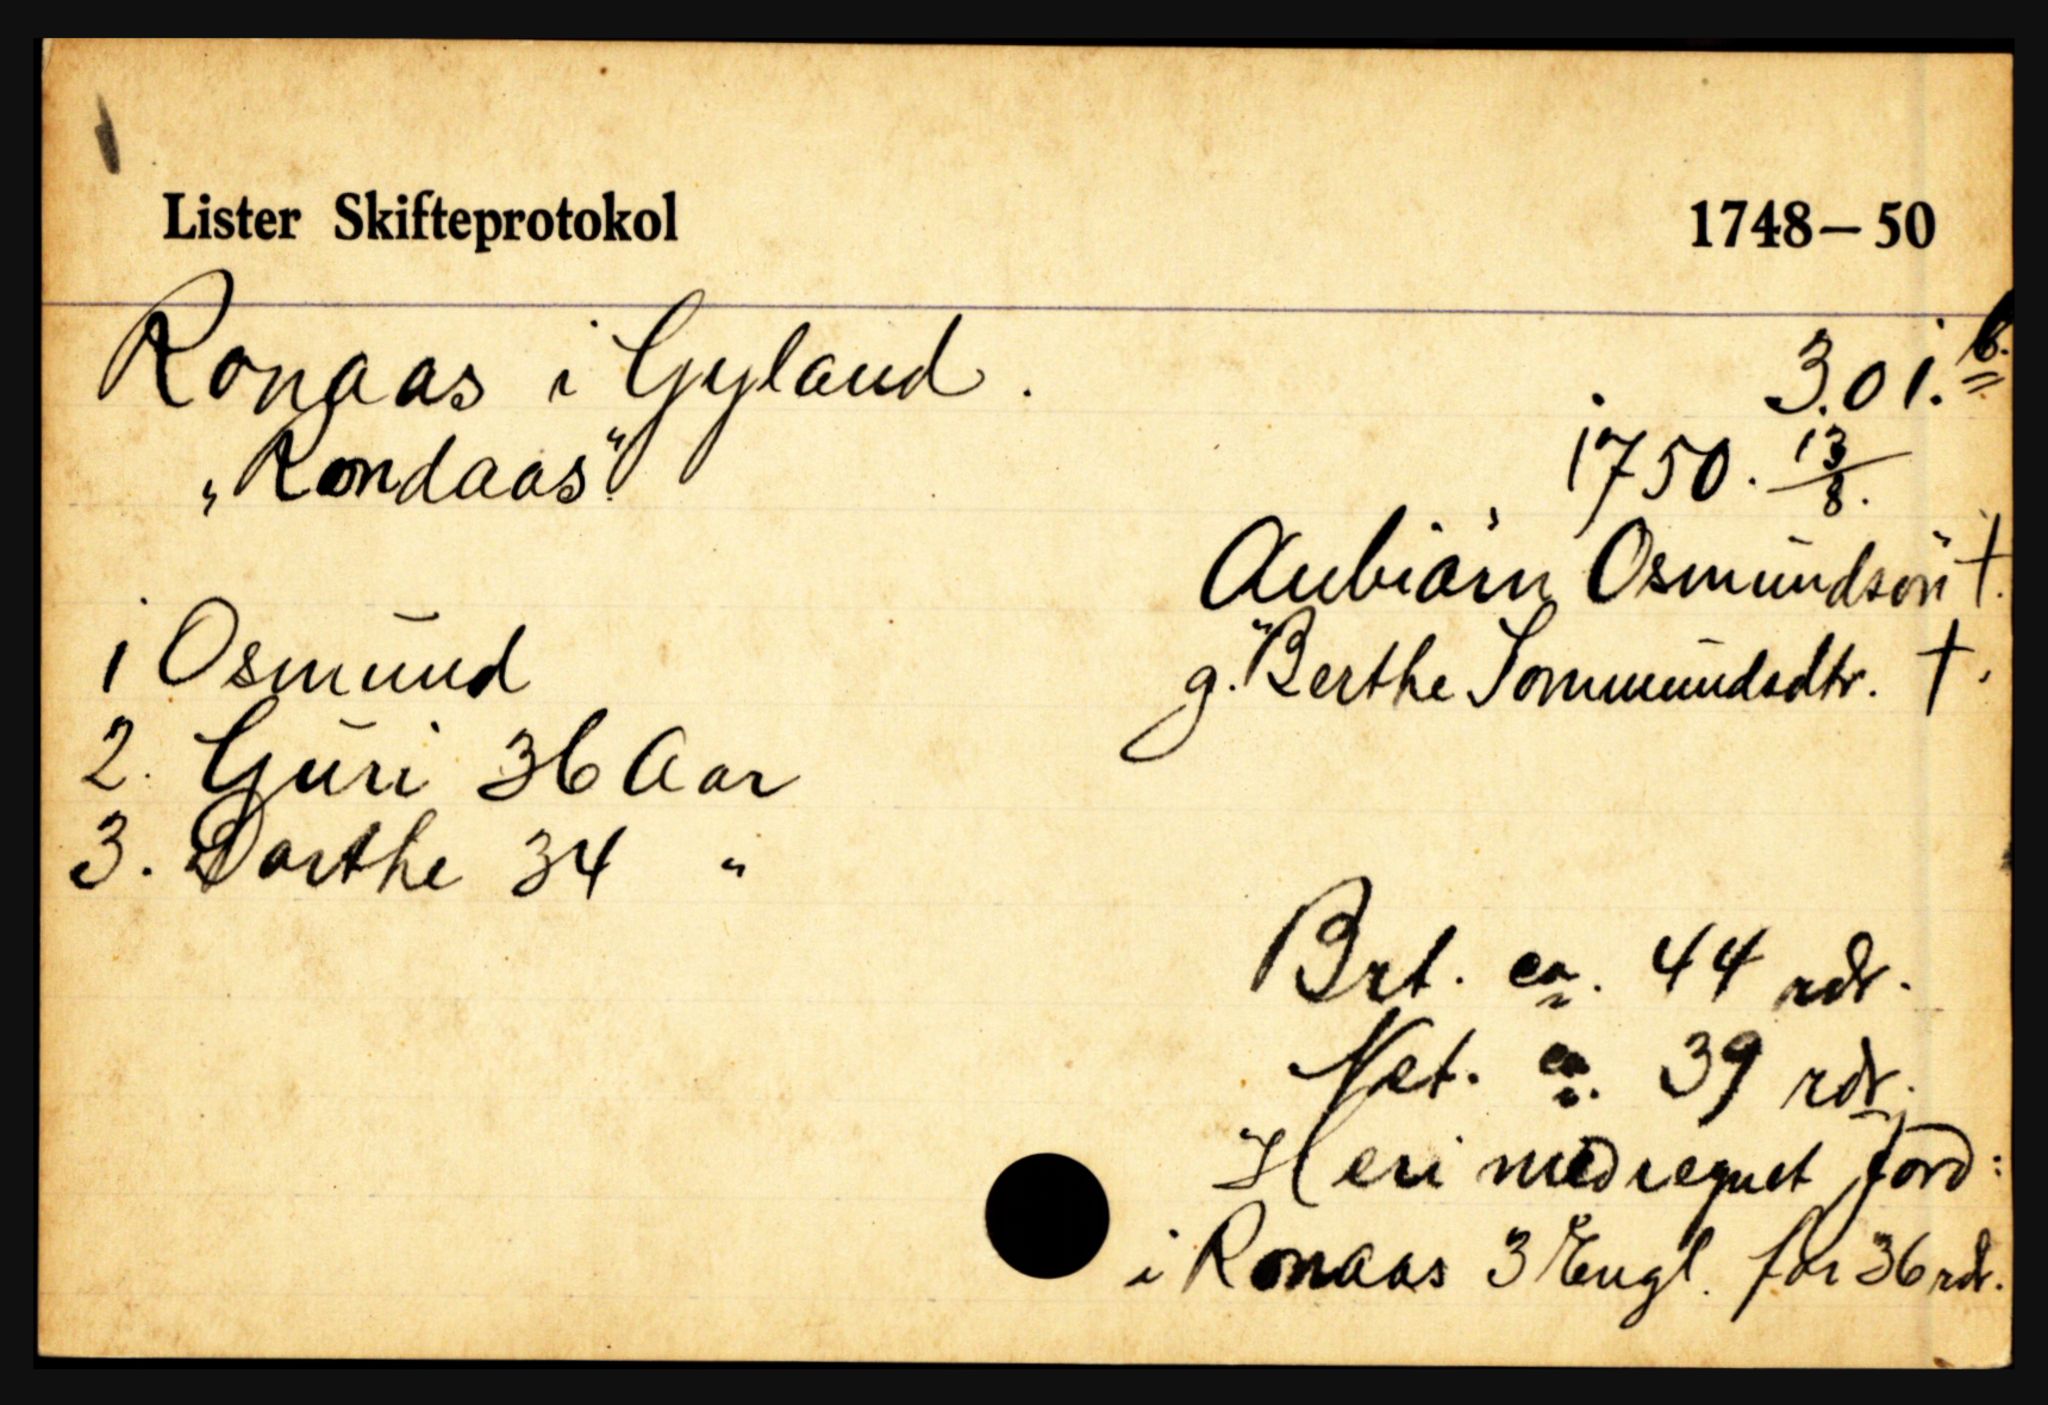 Lister Skifteprotokol 1748-50
Ronaas i Gyland. 301.b.
„Rondaas“. 1750. 13/8.
Aubiörn Osmundsön †.
1 Osmund
g. Berthe Tommundsdtr. †.
2. Guri 36 Aar
3. Dorthe 34 "
Brt. ca. 44 rdr.
Net. ca. 39 rdr.
Heri medregnet Jord:
i Ronaas 3 Engl. for 36 rdr.